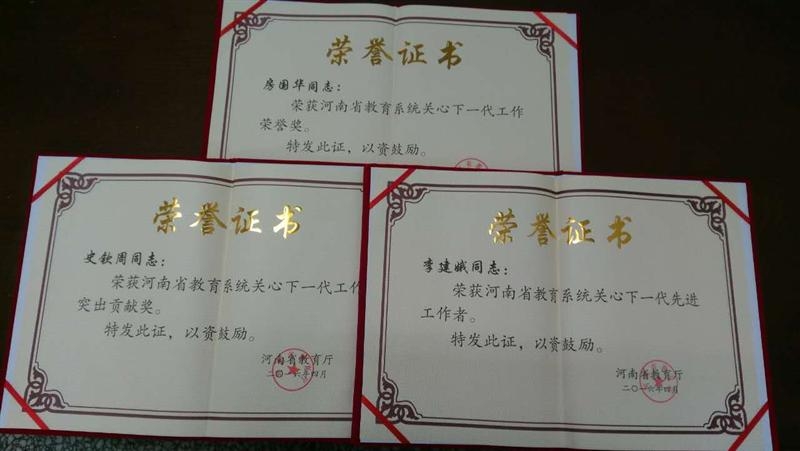 荣誉证书
房国华同志：
荣获河南省教育系统关心下一代工作
荣誉奖。
特发此证，以资鼓励。
荣誉证书
史钦周同志：
荣获河南省教育系统关心下一代工作
突出贡献奖。
特发此证，以资鼓励。
河南省教育厅
二〇一六年四月
荣誉证书
李建娥同志：
荣获河南省教育系统关心下一代先进
工作者。
特发此证，以资鼓励。
河南省教育厅
二〇一六年四月